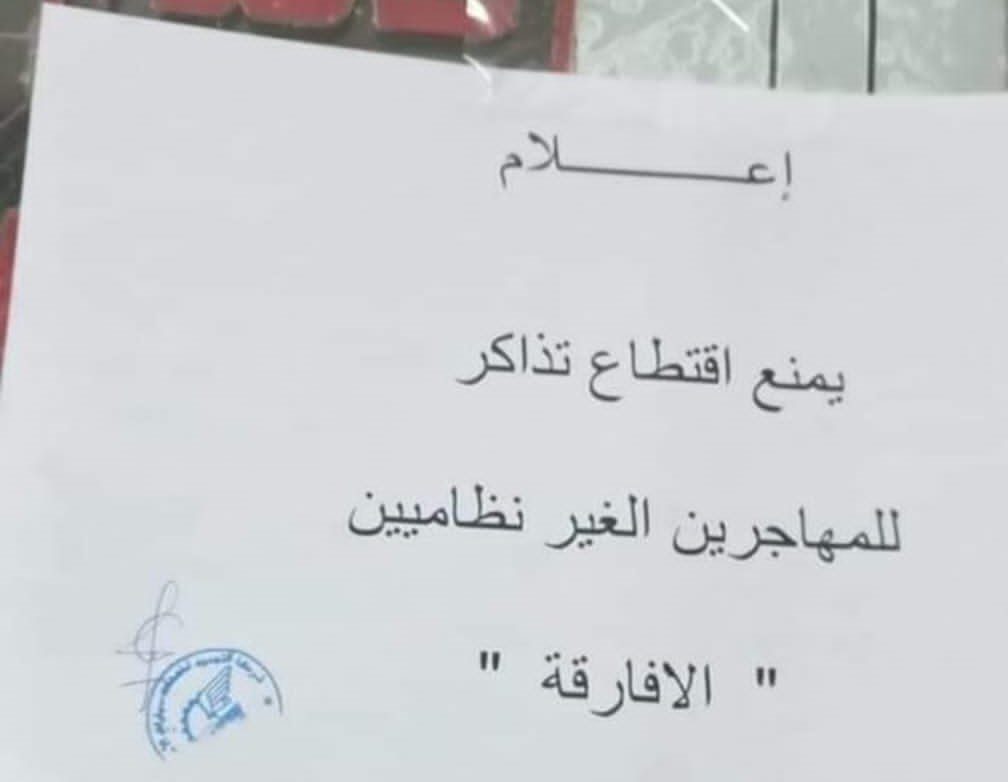 إعـــــــلام
يمنع اقتطاع تذاكر
للمهاجرين الغير نظاميين
" الافارقة "